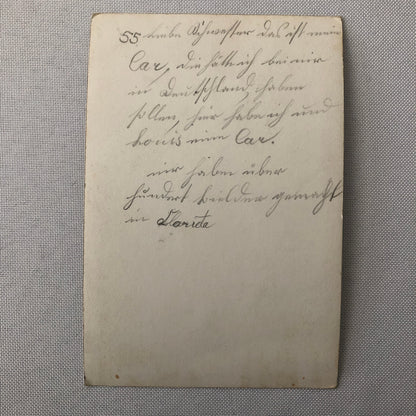 55 Liebe Schwester das ist mein
Car, die hätte ich bei mir
in Deutschland, haben
sollen, hier habe ich und
Louis eine Car.
wir haben über
hundert bielder gemacht
in Floride